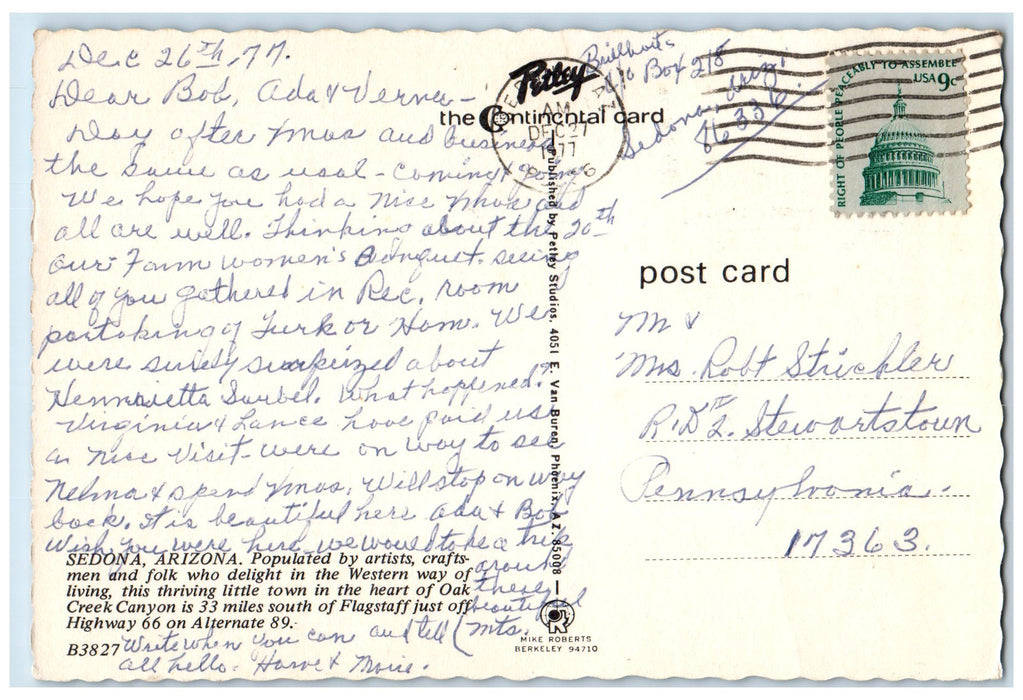 Dec 26th, 77.
Dear Bob, Ada & Verna-
Day after Xmas and business
the same as usal - coming & going
We hope you had a nice Xmas and
all are well. Thinking about the 20th
our Farm women's Banquet. seeing
all of you gathered in Rec. room
partaking of Turk or Ham. We
were surely surprized about
Henrietta What happened?
Virginia & Lance have paid us
a nice visit - were on way to see
Nelma & spend Xmas. Will stop on way
back. It is beautiful here Ada & Bob
Wish you were here - we would take a trip
around
these
beautiful
mts.
Write when you can and tell
all hello - Harve &
SEDONA, ARIZONA. Populated by artists, crafts-
men and folk who delight in the Western way of
living, this thriving little town in the heart of Oak
Creek Canyon is 33 miles south of Flagstaff just off
Highway 66 on Alternate 89.
B3827
Petley
the Continental card
AZ
AM
DEC 27
1977
Published by Petley Studios, 4051 E. Van Buren, Phoenix, AZ 85008
MIKE ROBERTS
BERKELEY 94710
Box 218
Sedona,
RIGHT OF PEOPLE PEACEABLY TO ASSEMBLE
USA 9c
post card
Mr &
Mrs. Robt Strickler
R.D. 2. Stewartstown
Pennsylvania.
17363.